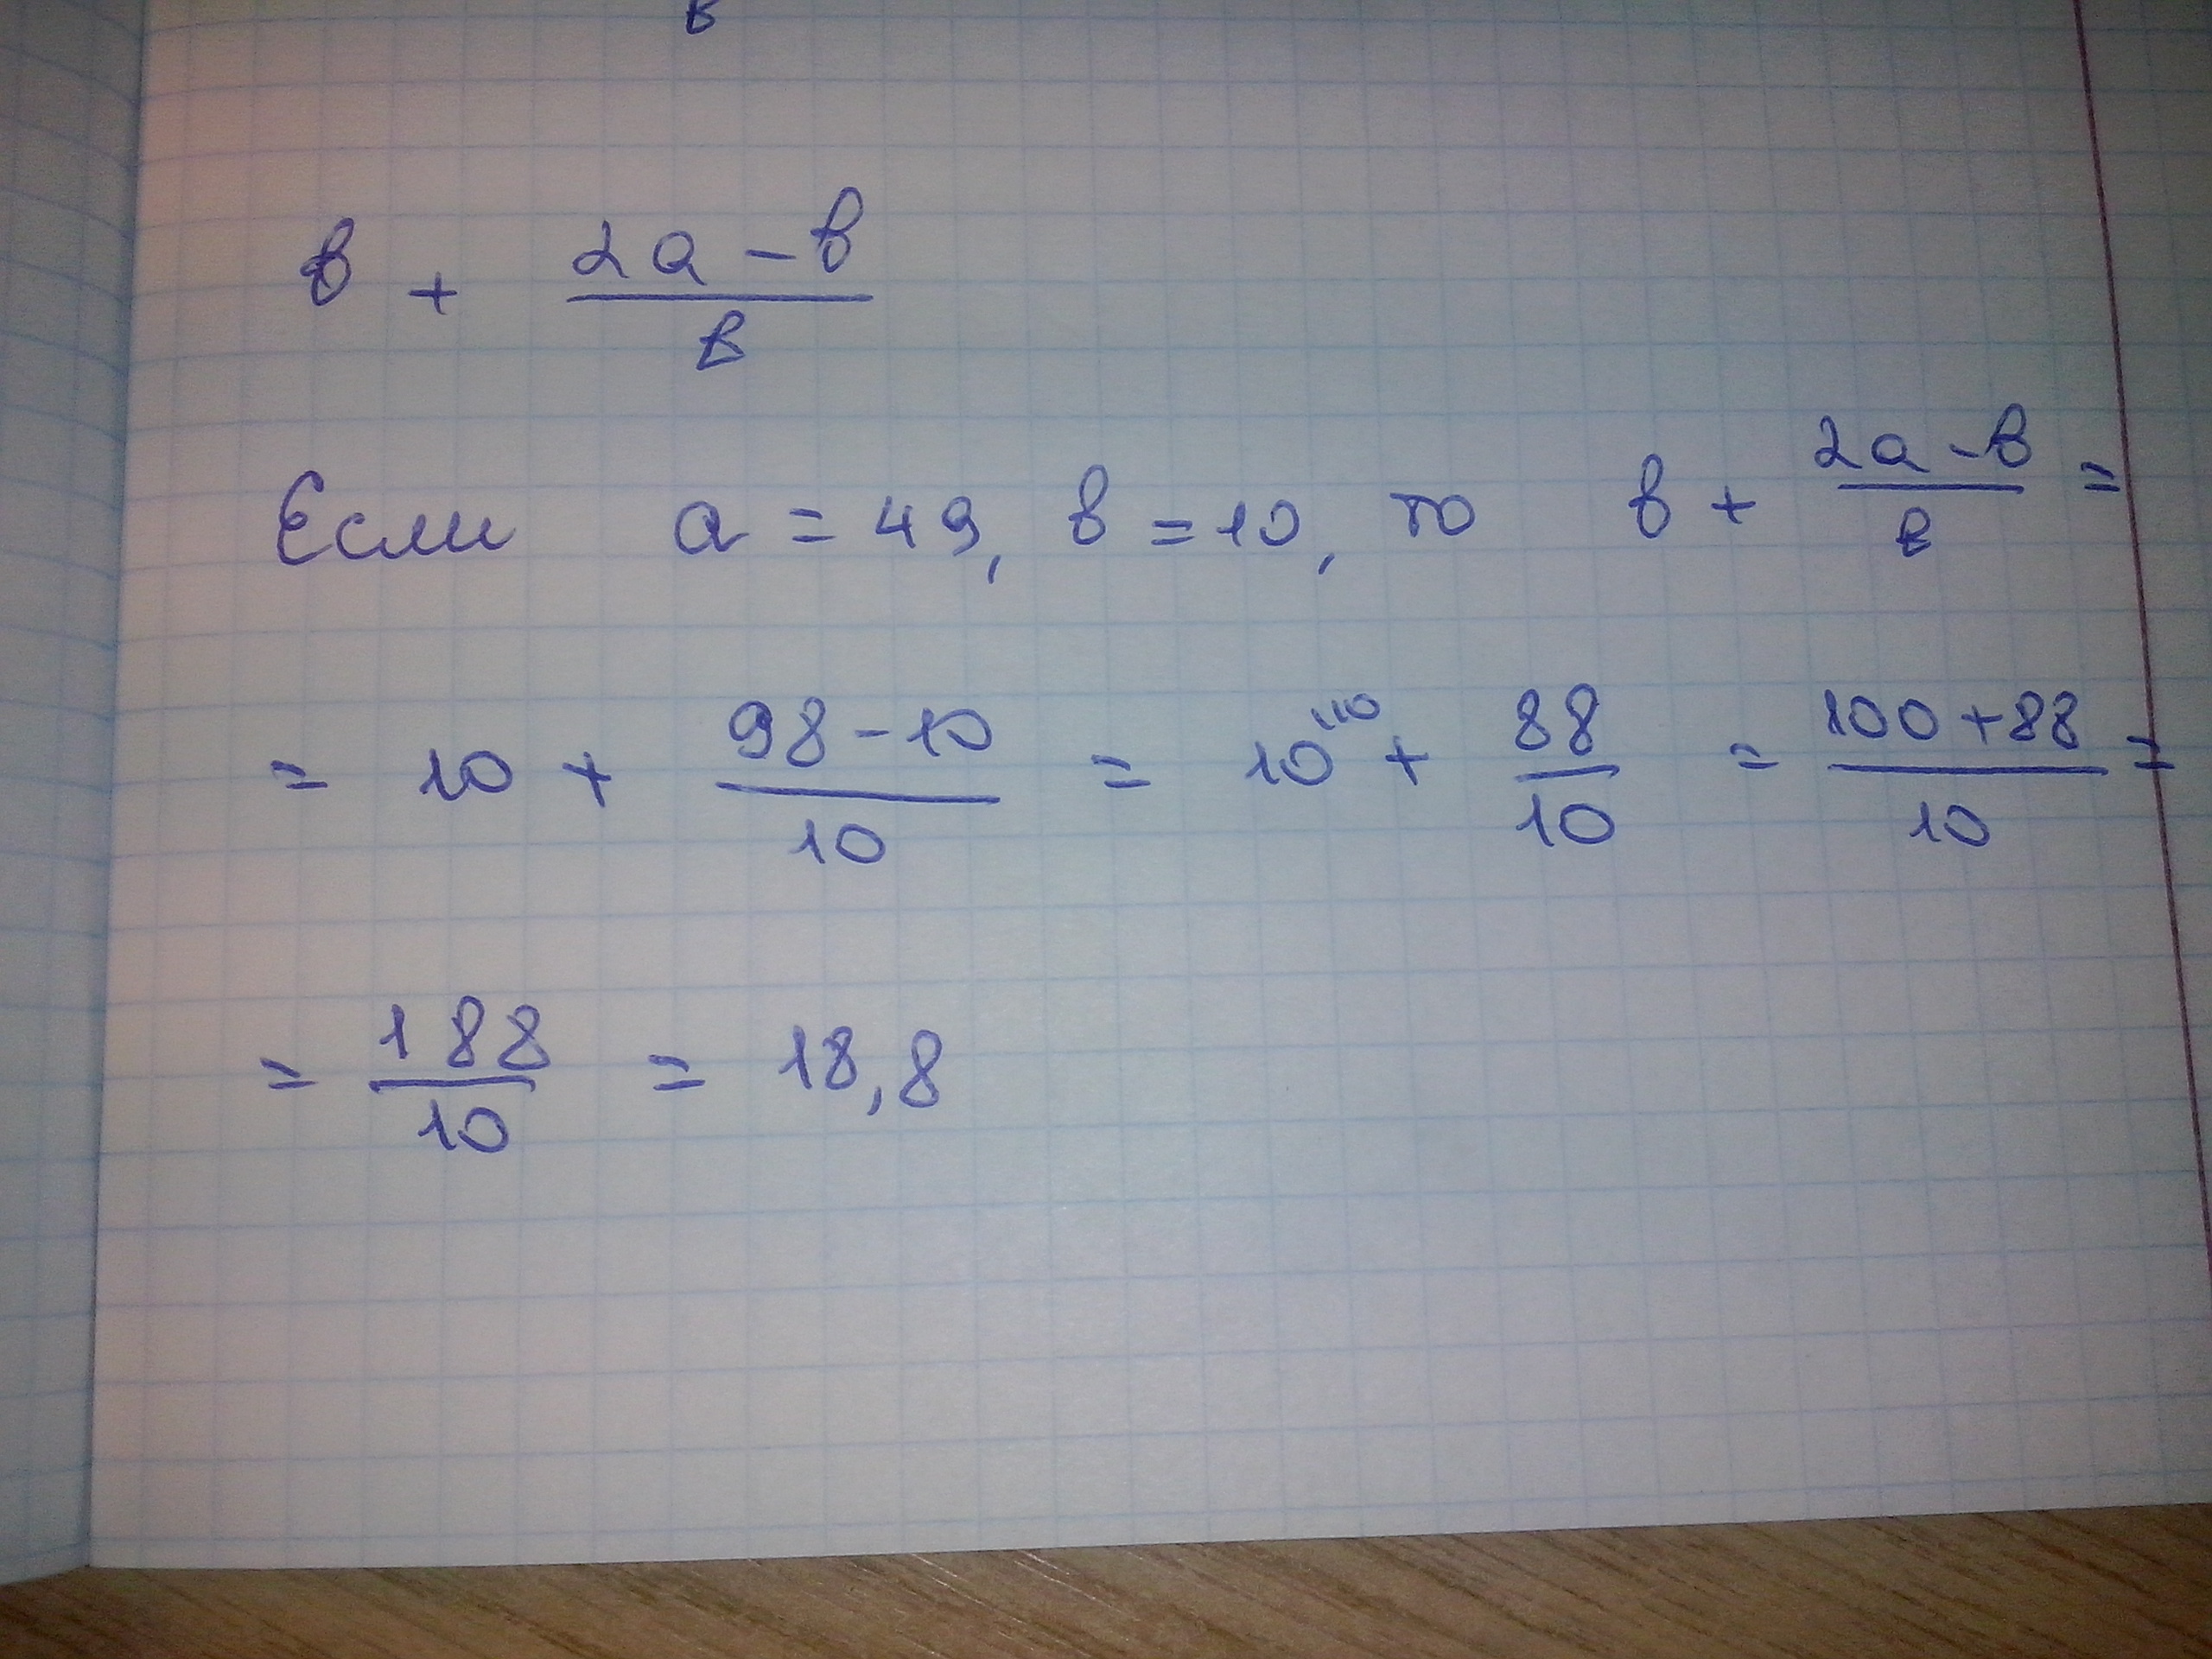 в
в + 2а - в / в
Если а = 49, в = 10, то в + 2а - в / в =
= 10 + 98 - 10 / 10 = 10 \10 + 88 / 10 = 100 + 88 / 10 =
= 188 / 10 = 18,8